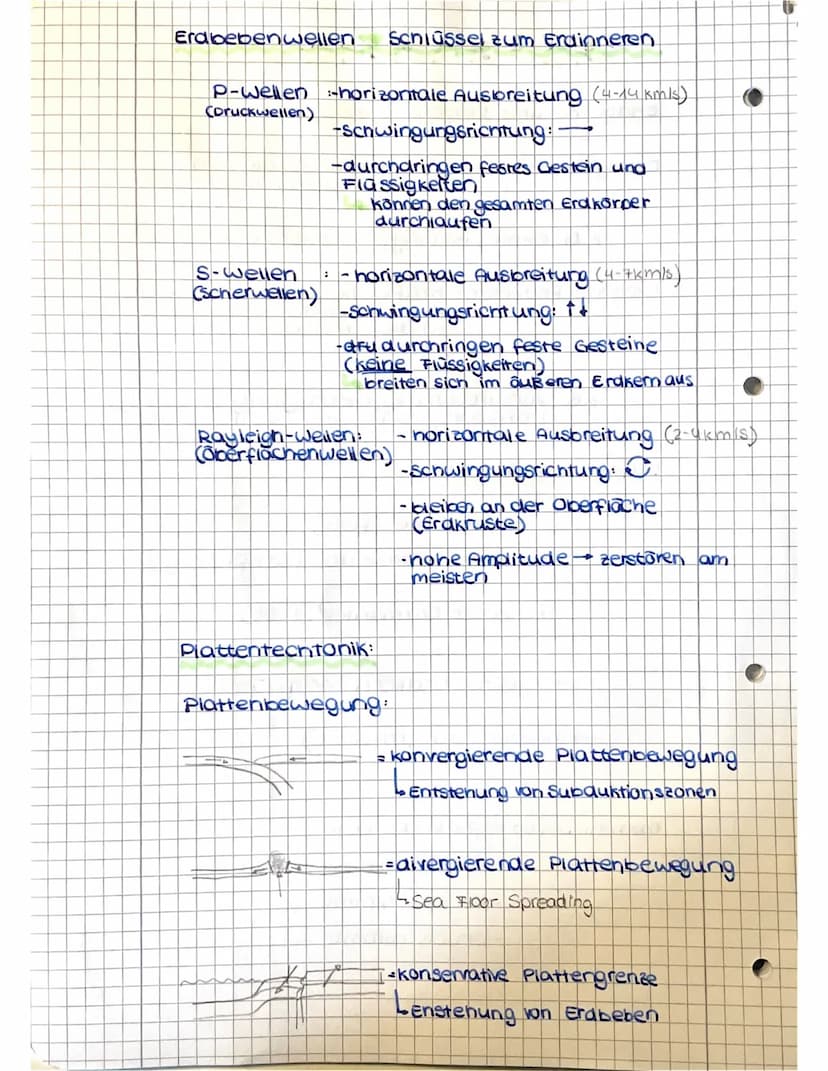 Erdbebenwellen - Schlüssel zum Erdinneren
P-Wellen :-horizontale Ausbreitung (4-14 km/s)
(Druckwellen)
-schwingungsrichtung: →
-durchdringen festes Gestein und
Flüssigkeiten
können den gesamten Erdkörper
durchlaufen
S-Wellen : - horizontale Ausbreitung (4-7km/s)
(Scherwellen)
-schwingungsrichtung: ↑↓
-durchringen feste Gesteine
(keine Flüssigkeiten)
breiten sich im äußeren Erdkern aus
Rayleigh-Wellen: - horizontale Ausbreitung (2-4km/s)
(Oberflächenwellen)
-schwingungsrichtung:
-bleiben an der Oberfläche
(Erdkruste)
-hohe Amplitude → zerstören am
meisten
Plattentechtonik:
Plattenbewegung:
= konvergierende Plattenbewegung
↳ Entstehung von Subduktionszonen
=divergierende Plattenbewegung
↳ Sea Floor Spreading
=konservative Plattengrenze
↳ Enstehung von Erdbeben